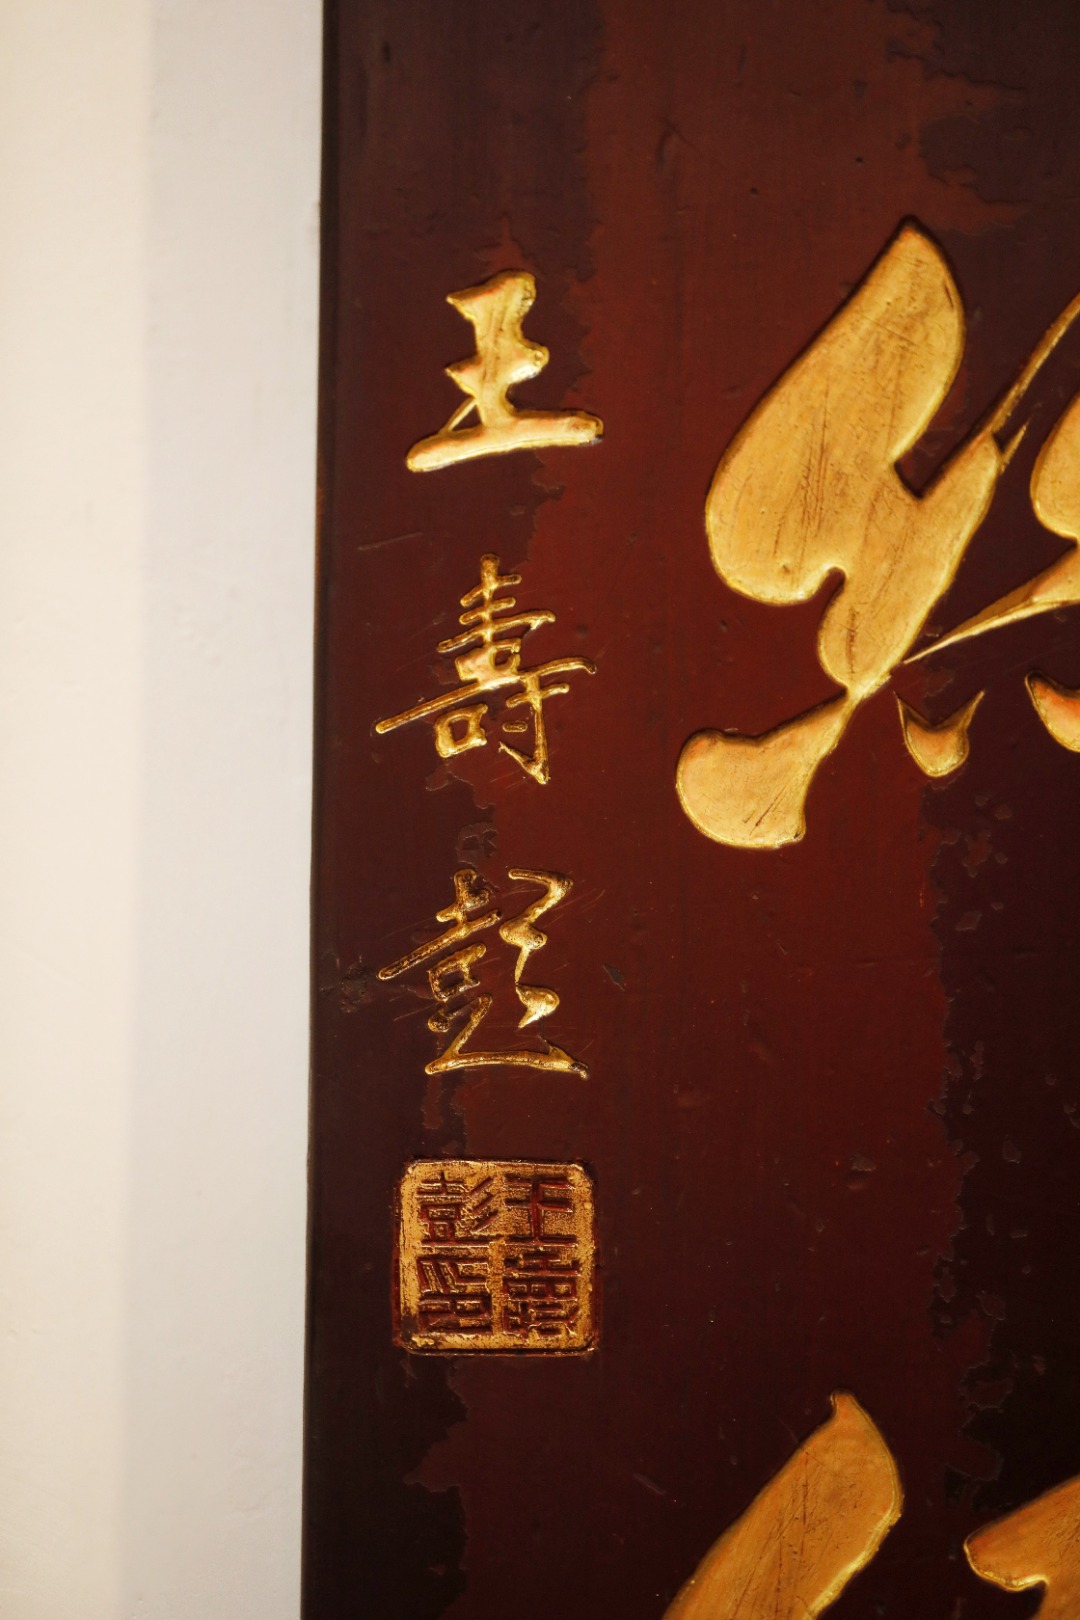 王壽彭
王壽彭印